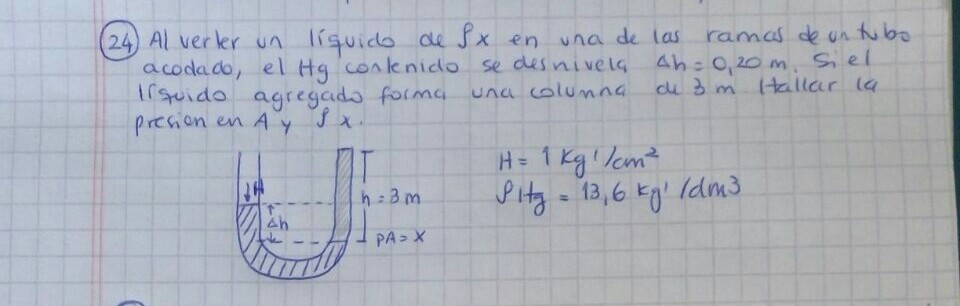 24) Al verter un líquido de ρx en una de las ramas de un tubo
acodado, el Hg contenido se desnivela Δh = 0,20 m. Si el
líquido agregado forma una columna de 3 m Hallar la
presion en A y ρx.
H = 1 Kg'/cm²
ρHg = 13,6 kg' /dm3
H
h = 3 m
Δh
PA = X